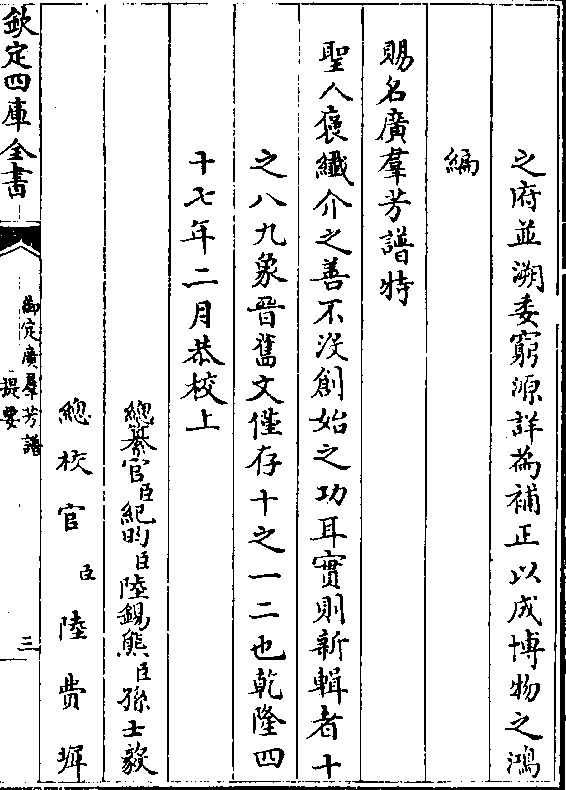 之府並溯委窮源詳為補正以成博物之鴻
編
賜名廣羣芳譜特
聖人襃纖介之善不没創始之功耳實則新輯者十
之八九象晉舊文僅存十之一二也乾隆四
十七年二月恭校上
總纂官臣紀昀臣陸錫熊臣孫士毅
總校官臣陸費墀
欽定四庫全書
御定廣羣芳譜
提要
三